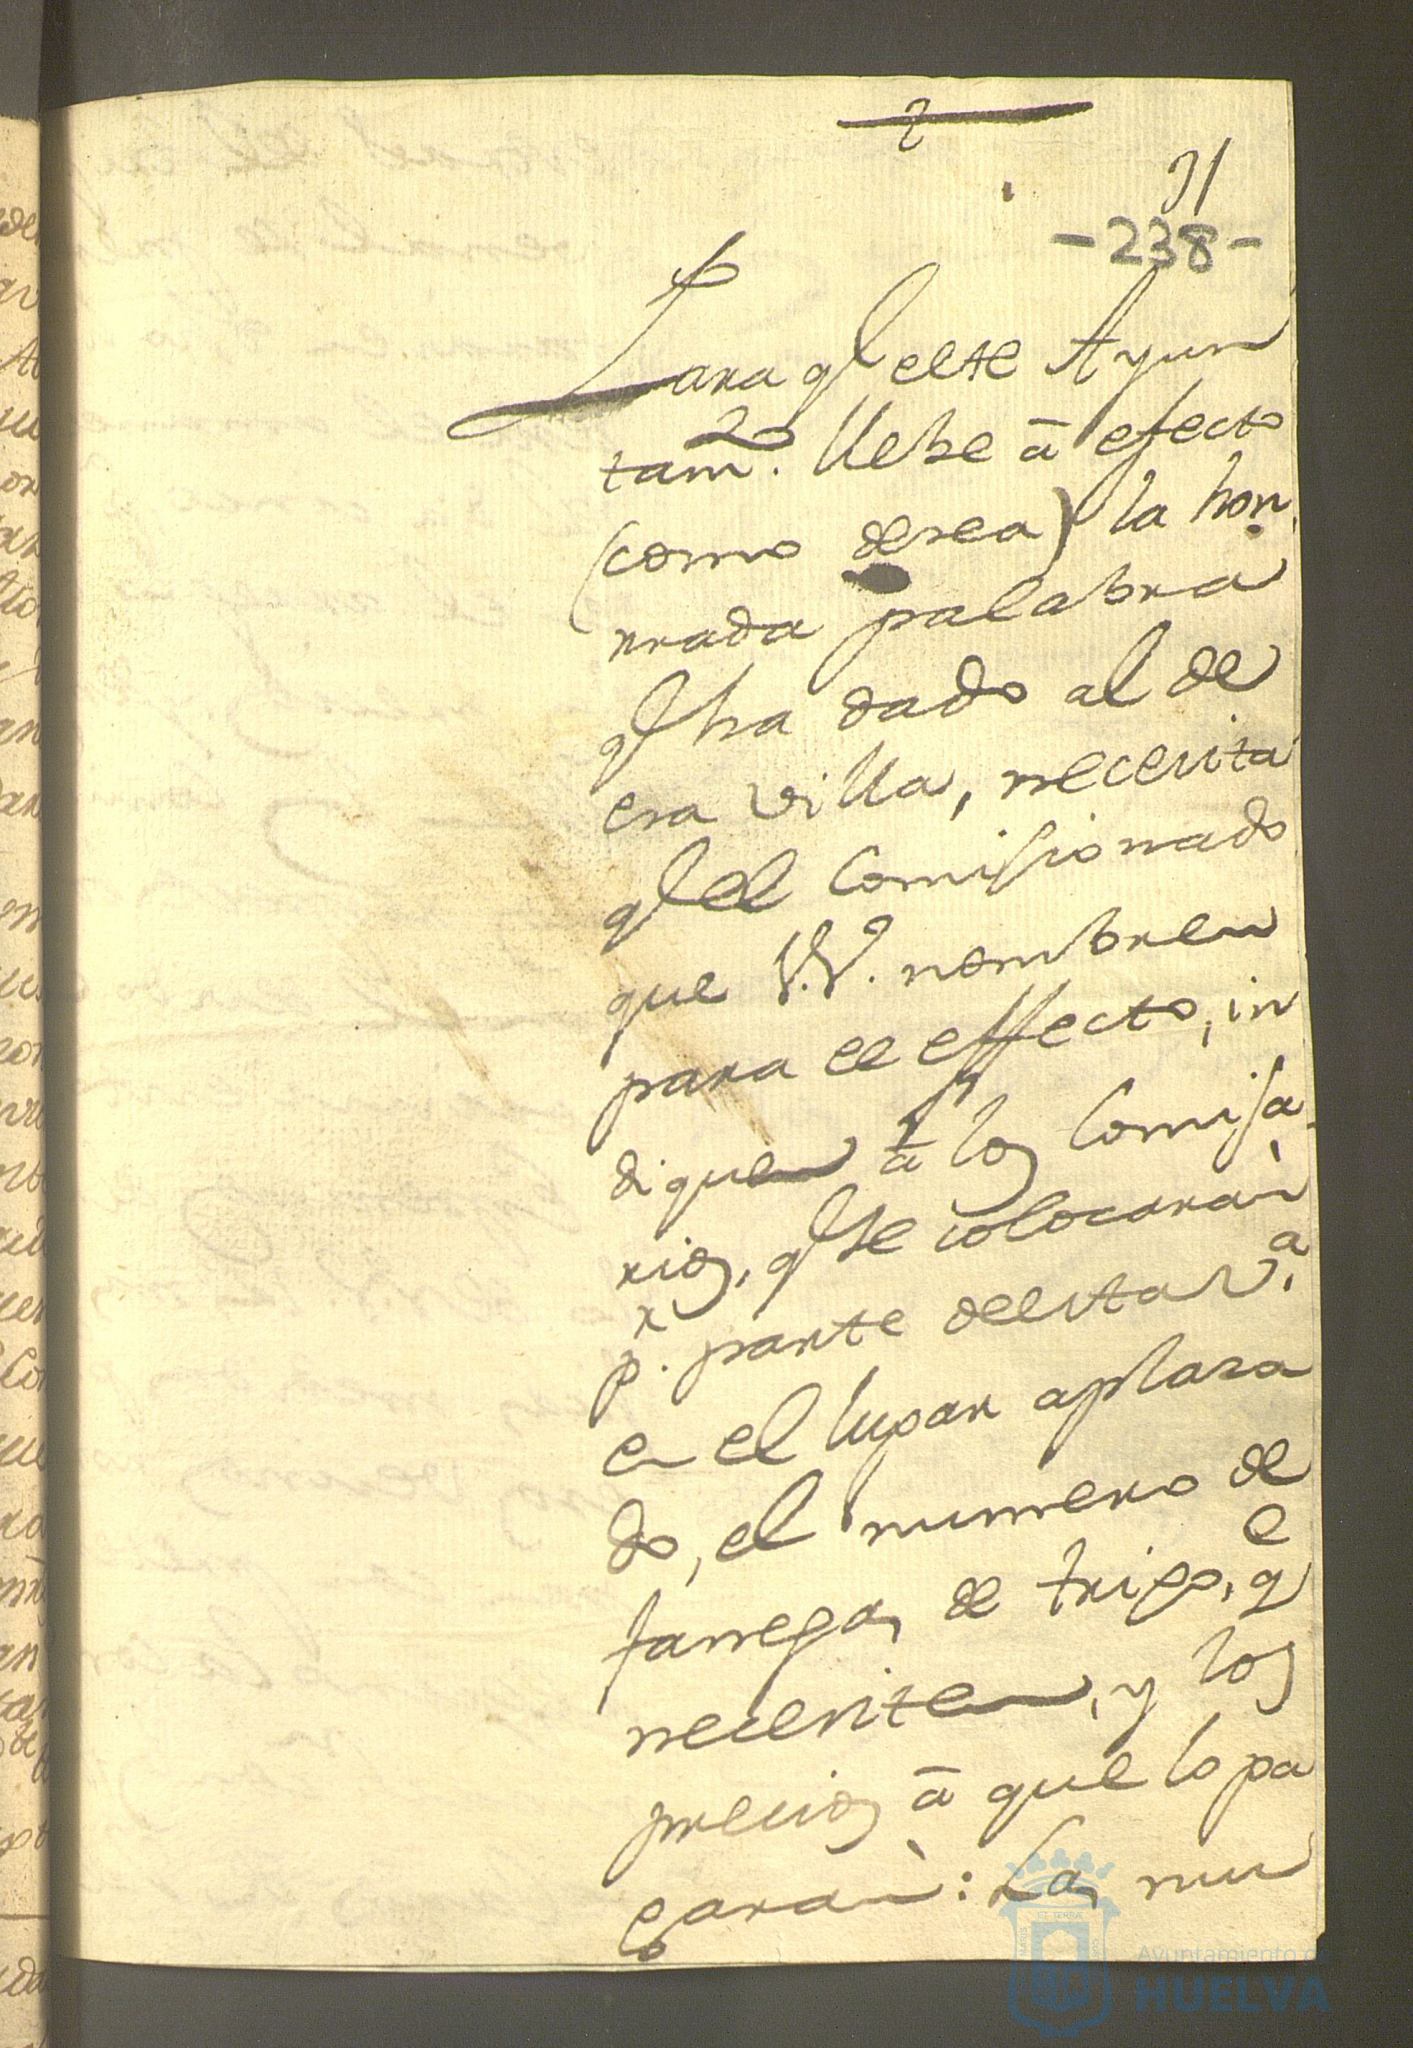 2
31
-238-
Para qᵉ este Ayun
tamᵗᵒ. llebe â efecto
(como desea) la hon
rrada palabra
qᵉ ha dado al de
esa villa, necesita
qᵉ el Comisionado
que V.V. nombren
para el effecto, in
diquen â los Comisa
rios, qᵉ se colocaràn
pʳ. parte de estas,ᵃ
en el lugar aplasa
do, el numero de
fanegas de trigo, qᵉ
necesiten, y los
precios â que lo pa
garàn: Las mu
Ayuntamiento de
HUELVA